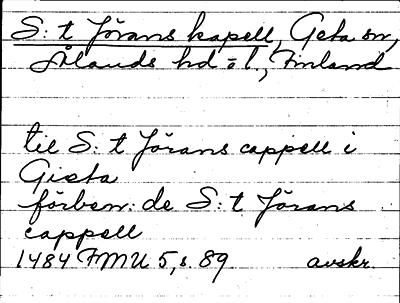 S:t Jörans kapell, Geta sn,
Ålands hd o l., Finland
til S:t Jörans cappell i
Gieta
förbem: de S:t Jörans
cappell
1484 FMU 5, s. 89 avskr.